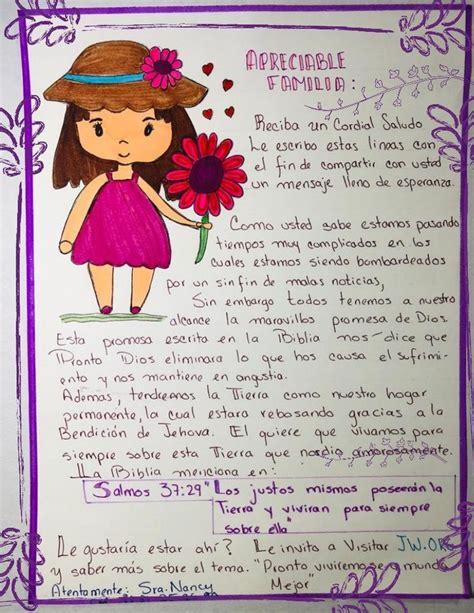 APRECIABLE
FAMILIA:
Reciba un Cordial Saludo
Le escribo estas lineas con
el fin de compartir con usted
un mensaje lleno de esperanza.
Como usted sabe estamos pasando
tiempos muy complicados en los
cuales estamos siendo bombardeados
por un sin fin de malas noticias,
Sin embargo todos tenemos a nuestro
alcance la maravillos promesa de Dios.
Esta promosa escrita en la Biblia nos dice que
Pronto Dios eliminara lo que hos causa el sufrimi-
ento y nos mantiene en angustia.
Ademas, tendreanos la Tierra como nuestro hogar
permanente, la cual estara rebosando gracias a la
Bendición de Jehova. El quiere que vivamos para
siempre sobre esta Tierra que nos dio amorosamente.
La Biblia menciona en:
Salmos 37:29 "Los justos mismos poseerán la
Tierra y viviran para siempre
sobre ella"
Le gustaría estar ahi? Le invito a Visitar JW.OR
y saber más sobre el tema. "Pronto viviremos a mundo
Atentamente: Sra. Nancy Mejor"